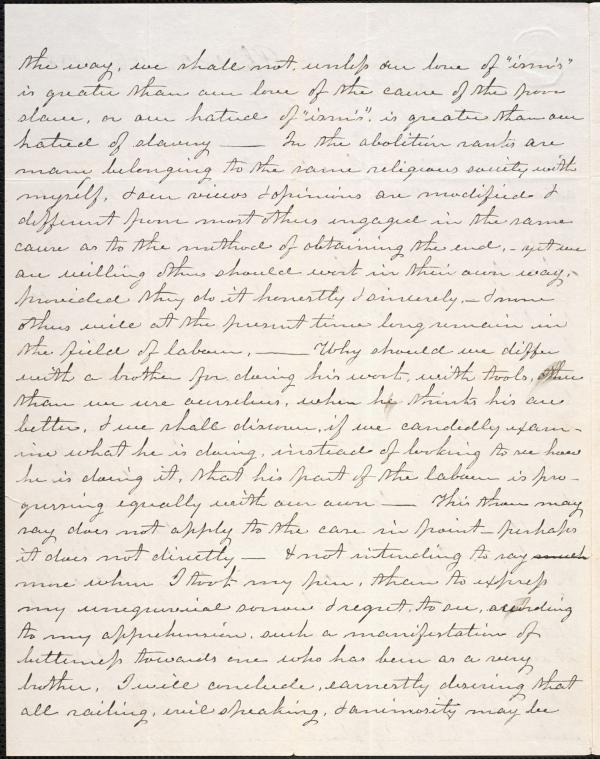 the way, we shall not, unless our love of "ism's"
is greater than our love of the cause of the poor
slave, or our hatred of "ism's", is greater than our
hatred of slavery — In the abolition ranks are
many belonging to the same religious society with
myself, & our views & opinions are modified &
different from most others engaged in the same
cause as to the method of obtaining the end, - yet we
are willing others should work in their own way,
provided they do it honestly & sincerely, - & none
others will at the present time long remain in
the field of labour, — Why should we differ
with a brother for doing his work, with tools, other
than we use ourselves, when he thinks his are
better, & we shall discover, if we candedly exam-
ine what he is doing, instead of looking to see how
he is doing it, that his part of the labour is pro-
gressing equally with our own — This thou may
say does not apply to the case in point - perhaps
it does not directly — & not intending to say much
more when I took my pen, than to express
my unequivocal sorrow & regret, to see, according
to my apprehension, such a manifestation of
bitterness towards one who has been as a very
brother, I will conclude, earnestly desiring that
all railing, evil speaking, & animosity may be